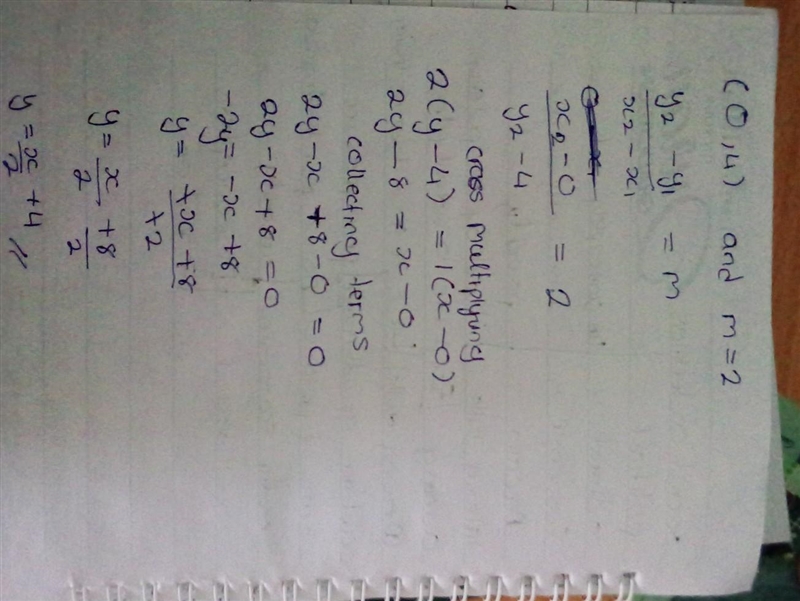 (0,4) and m=2
y₂ - y₁ / x₂ - x₁ = m
x₂ - 0 / y₂ - 4 = 2
cross multiplying
2(y-4) = 1(x-0)
2y - 8 = x - 0
collecting terms
2y - x + 8 - 0 = 0
2y - x + 8 = 0
-2y = -x + 8
y = +x + 8 / +2
y = x/2 + 8/2
y = x/2 + 4 //